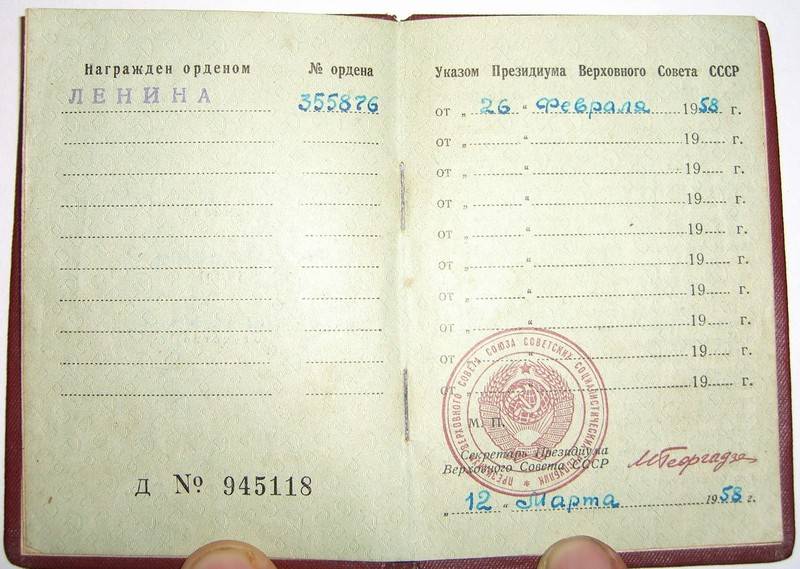 Награжден орденом
№ ордена
ЛЕНИНА
355876
Д № 945118
Указом Президиума Верховного Совета СССР
от „ 26 “ Февраля 1958 г.
от „ “ 19 г.
от „ “ 19 г.
от „ “ 19 г.
от „ “ 19 г.
от „ “ 19 г.
от „ “ 19 г.
от „ “ 19 г.
от „ “ 19 г.
от „ “ 19 г.
ПРЕЗИДИУМ ВЕРХОВНОГО СОВЕТА СОЮЗА СОВЕТСКИХ СОЦИАЛИСТИЧЕСКИХ РЕСПУБЛИК
М. П.
Секретарь Президиума
Верховного Совета СССР
МГеоргадзе
„ 12 “ Марта 1958 г.